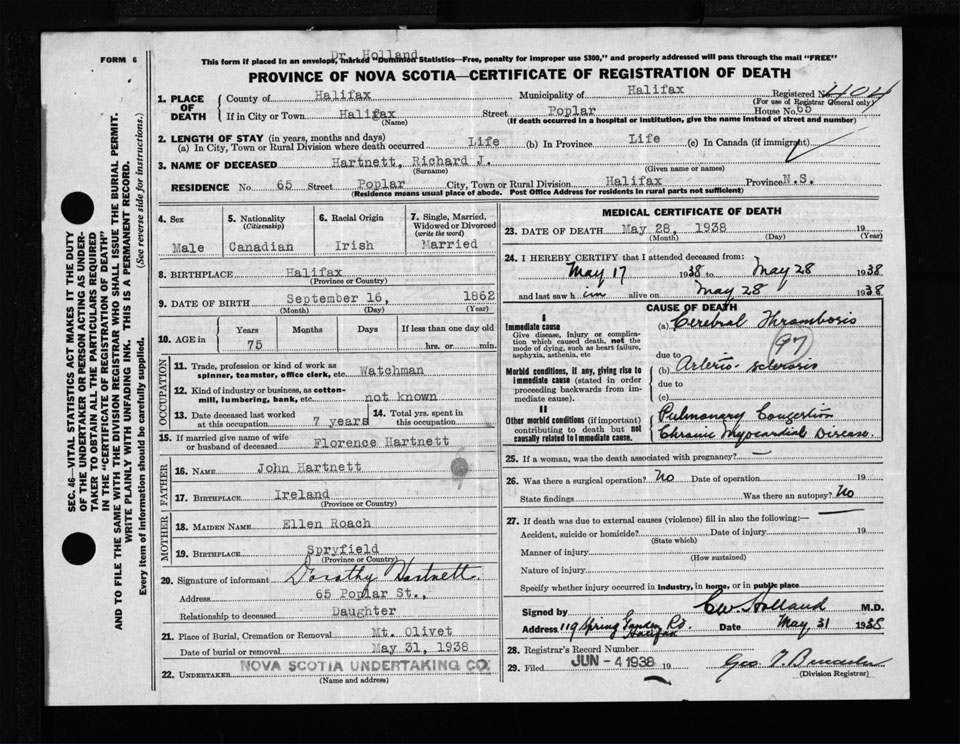 FORM 6
Dr. Holland
This form if placed in an envelope, marked "Dominion Statistics—Free, penalty for improper use $300," and properly addressed will pass through the mail "FREE"
PROVINCE OF NOVA SCOTIA—CERTIFICATE OF REGISTRATION OF DEATH
SEC. 46—VITAL STATISTICS ACT MAKES IT THE DUTY
OF THE UNDERTAKER OR PERSON ACTING AS UNDER-
TAKER TO OBTAIN ALL THE PARTICULARS REQUIRED
IN THE "CERTIFICATE OF REGISTRATION OF DEATH"
AND TO FILE THE SAME WITH THE DIVISION REGISTRAR WHO SHALL ISSUE THE BURIAL PERMIT.
WRITE PLAINLY WITH UNFADING INK. THIS IS A PERMANENT RECORD.
Every item of information should be carefully supplied. (See reverse side for instructions.)
1. PLACE OF DEATH
County of Halifax Municipality of Halifax Registered No. 404
(For use of Registrar General only)
If in City or Town Halifax Street Poplar House No. 65
(Name) (If death occurred in a hospital or institution, give the name instead of street and number)
2. LENGTH OF STAY (in years, months and days)
(a) In City, Town or Rural Division where death occurred Life (b) In Province Life (c) In Canada (if immigrant)
3. NAME OF DECEASED Hartnett, Richard J.
(Surname) (Given name or names)
RESIDENCE No. 65 Street Poplar City, Town or Rural Division Halifax Province N.S.
(Residence means usual place of abode. Post Office Address for residents in rural parts not sufficient)
4. Sex
Male
5. Nationality
(Citizenship)
Canadian
6. Racial Origin
Irish
7. Single, Married,
Widowed or Divorced
(write the word)
Married
8. BIRTHPLACE Halifax
(Province or Country)
9. DATE OF BIRTH September 16, 1862
(Month) (Day) (Year)
10. AGE in
Years Months Days If less than one day old
75 hrs. or min.
OCCUPATION
11. Trade, profession or kind of work as
spinner, teamster, office clerk, etc. Watchman
12. Kind of industry or business, as cotton-
mill, lumbering, bank, etc. not known
13. Date deceased last worked
at this occupation 7 years
14. Total yrs. spent in
this occupation
15. If married give name of wife
or husband of deceased Florence Hartnett
FATHER
16. NAME John Hartnett
17. BIRTHPLACE Ireland
(Province or Country)
MOTHER
18. MAIDEN NAME Ellen Roach
19. BIRTHPLACE Spryfield
(Province or Country)
20. Signature of informant Dorothy Hartnett.
Address 65 Poplar St.,
Relationship to deceased Daughter
21. Place of Burial, Cremation or Removal Mt. Olivet
Date of burial or removal May 31, 1938
22. UNDERTAKER NOVA SCOTIA UNDERTAKING CO.
(Name and address)
MEDICAL CERTIFICATE OF DEATH
23. DATE OF DEATH May 28, 1938 19
(Month) (Day) (Year)
24. I HEREBY CERTIFY that I attended deceased from:
May 17 1938 to May 28 1938
and last saw h im alive on May 28 1938
CAUSE OF DEATH
I
Immediate cause
Give disease, injury or complica-
tion which caused death, not the
mode of dying, such as heart failure,
asphyxia, asthenia, etc
(a) Cerebral Thrombosis
97
due to
Morbid conditions, if any, giving rise to
immediate cause (stated in order
proceeding backwards from im-
mediate cause).
(b) Arterio-sclerosis
due to
(c)
II
Other morbid conditions (if important)
contributing to death but not
causally related to immediate cause.
Pulmonary Congestion
Chronic Myocardial Disease.
25. If a woman, was the death associated with pregnancy? —
26. Was there a surgical operation? No Date of operation 19
State findings Was there an autopsy? No
27. If death was due to external causes (violence) fill in also the following:— —
Accident, suicide or homicide? Date of injury 19
(State which)
Manner of injury
(How sustained)
Nature of injury
Specify whether injury occurred in industry, in home, or in public place
Signed by C W Holland M.D.
Address 119 Spring Garden Rd. Halifax Date May 31 1938
28. Registrar's Record Number
29. Filed JUN - 4 1938 19
(Division Registrar)